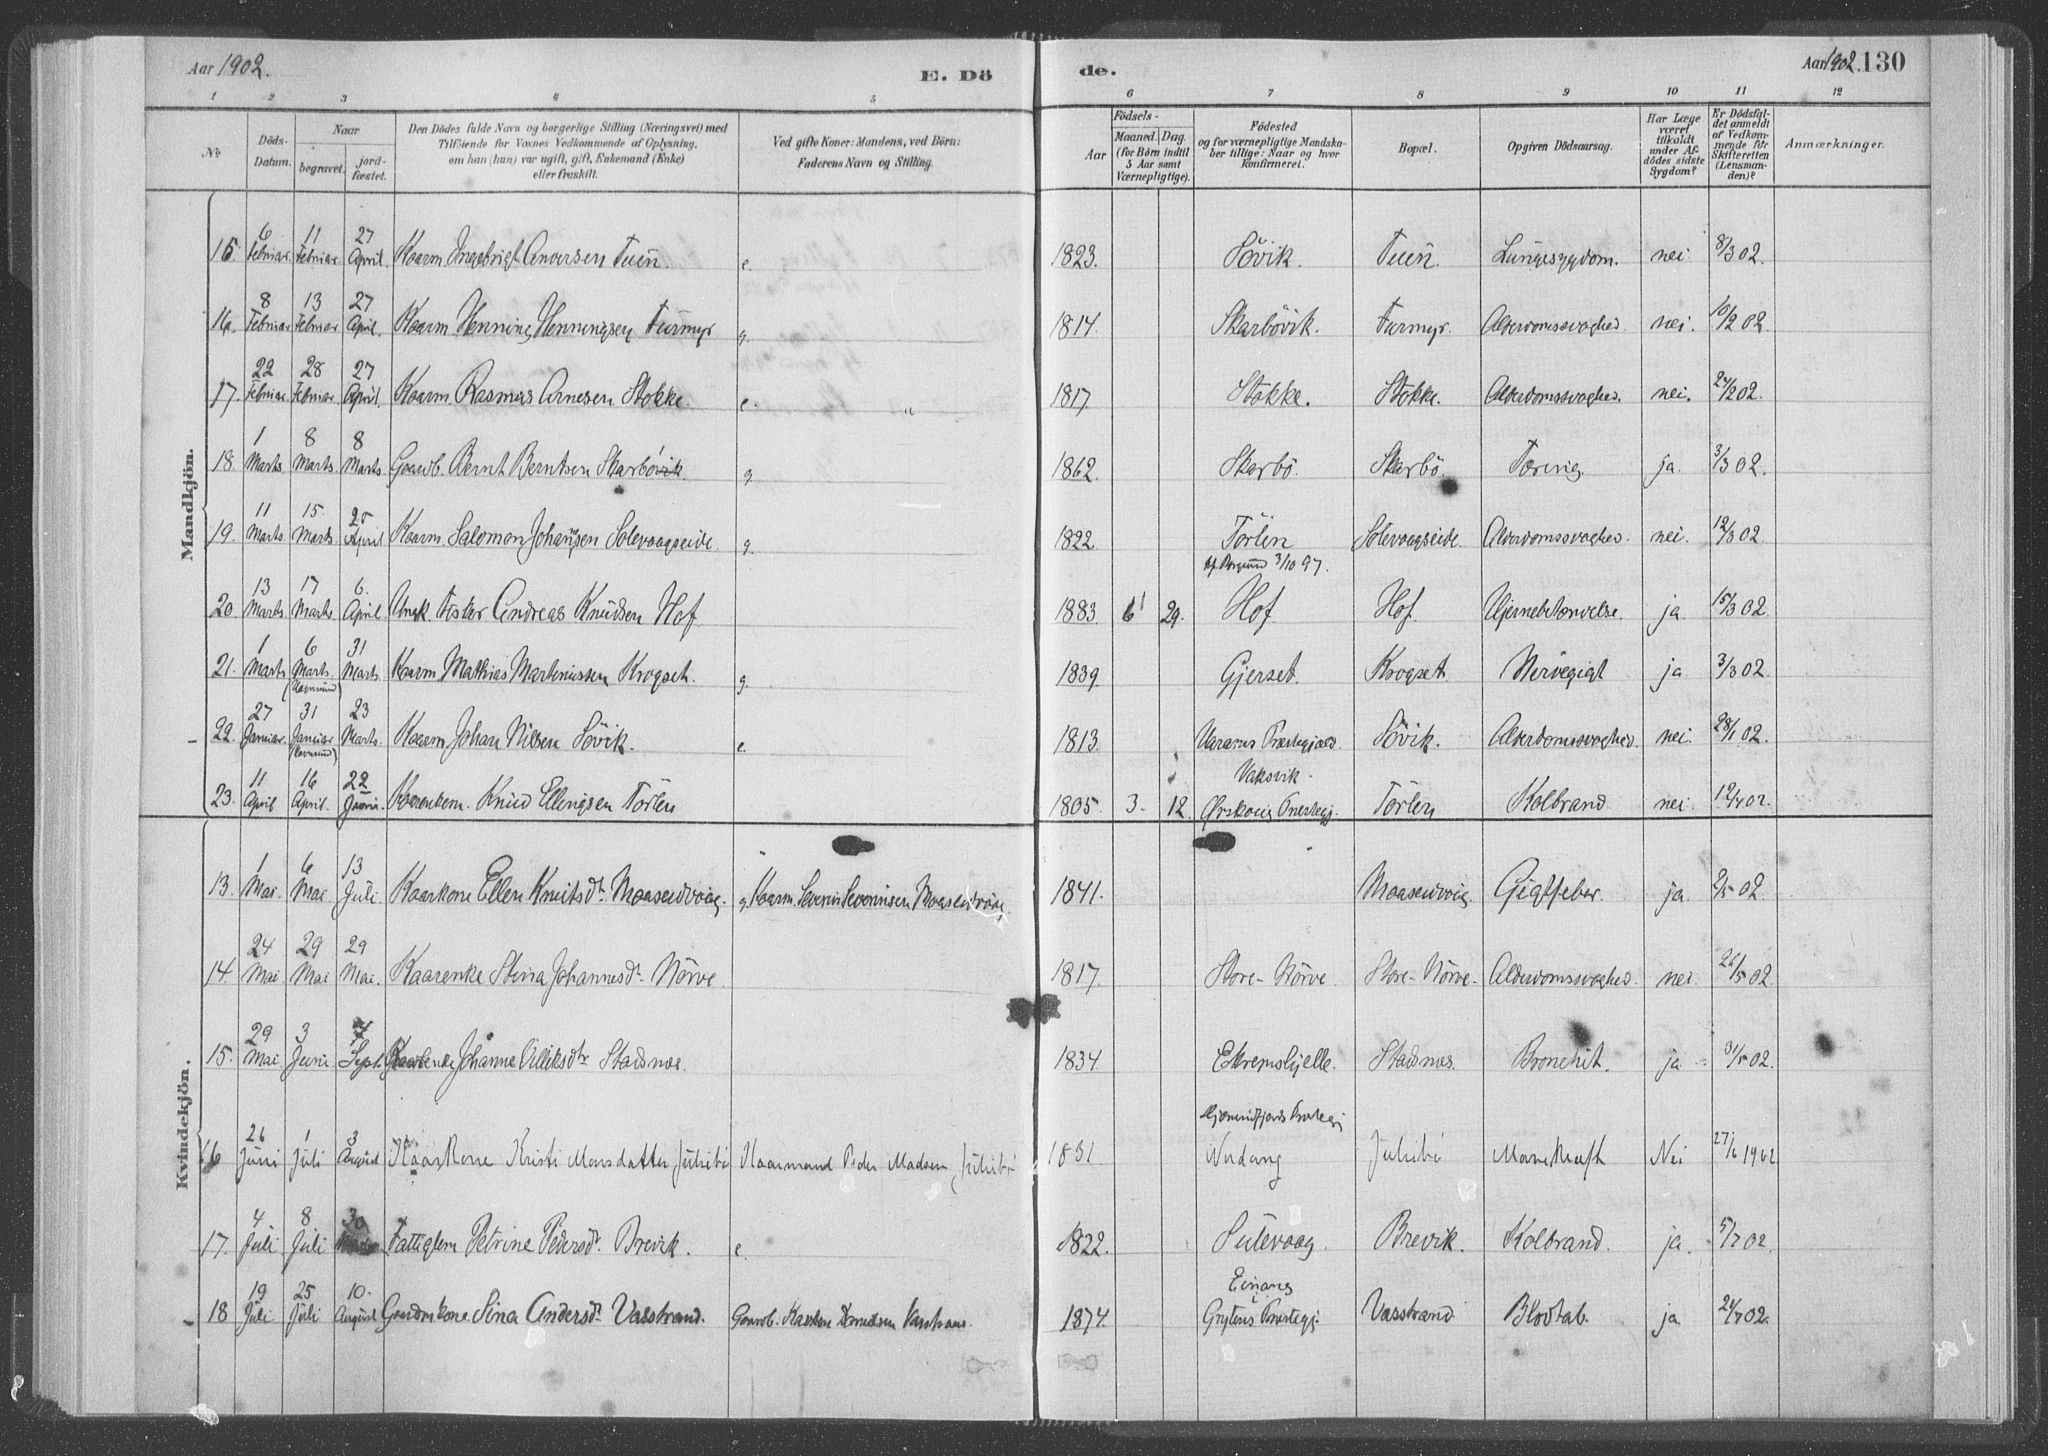 Aar 1902.
E. Dö
de.
Aar 1902. 130
1 2 3 4 5 6 7 8 9 10 11 12
No
Döds-Datum.
Naar
begravet.
jordfæstet.
Den Dödes fulde Navn og borgerlige Stilling (Næringsvei) med
Tilföiende for Voxnes Vedkommende af Oplysning,
om han (hun) var ugift, gift, Enkemand (Enke)
eller fraskilt.
Ved gifte Koner: Mandens, ved Börn:
Faderens Navn og Stilling.
Födsels-
Aar
Maaned. Dag.
(for Börn indtil
5 Aar samt
Værnepligtige).
Födested
og for værnepligtige Mandskaber tillige: Naar og hvor
konfirmeret.
Bopæl.
Opgiven Dödsaarsag.
Har Læge
været
tilkaldt
under Afdödes sidste
Sygdom?
Er Dödsfaldet anmeldt
af Vedkommende for
Skifteretten
(Lensmanden)?
Anmærkninger.
Mandkjön.
15. 6 Februar. 11 Februar. 27 April. Kaarm. Ingebrigt Andersen Tuen. e. 1823. Sövik. Tuen. Lungesygdom. nei. 8/3 02.
16. 8 Februar 13 Februar 27 April. Kaarm. Henning Henningsen Furmyr g. 1814. Skarbövik. Furmyr. Alderdomssvaghed. nei. 10/2 02.
17. 22 Februar. 28 Februar. 27 April. Kaarm. Rasmus Arnesen Stokke. e. " 1817 Stokke. Stokke. Alderdomssvaghed. nei. 24/2 02.
18. 1 Marts. 8 Marts. 8 Marts. Gaardb. Bernt Berntsen Skarbövik. g. 1862. Skarbö. Skarbö. Tæring. ja. 3/3 02.
19. 11 Marts. 15. Marts. 25 April Kaarm. Salomon Johansen Solevaagseide. g. 1822. Törlen Solevaagseide. Alderdomssvaghed. nei. 12/3 02.
20. 13 Marts. 17 Marts. 6. April. Ungk. Fisker Andreas Knudsen Hof 1883 6 29. 3/10 97. Hof Hof. Hjernebetændelse. ja. 15/3 02.
21. 1 Marts 6 Marts. 31 Marts. Kaarm. Mathias Martinussen Krogset. g. 1839. Gjerset. Krogset. Nervegigt ja 3/3 02.
22. 27 Januar. 31 Januar 23 Marts. Kaarm. Johan Nilsen Sövik. e. 1813. Harams Præstegjæld. Sövik. Alderdomssvaghed. nei. 28/1 02.
23. 11 April 16 April. 22 Juni. Kaarenkem. Knud Ellingsen Törlen 1805. 3. 12. Vaksvik. Ørskoug Præstegj. Törlen Kolbrand. nei 12/4 02.
Kvindekjön.
13. 1 Mai. 6 Mai 13 Juli Kaarkone Ellen Knutsdr. Maaseidvaag. g. Kaarm. Severin Severinsen Maaseidvaag. 1841. Maaseidvaag. Gigtfeber. ja. 2/5 02.
14. 24 Mai. 29 Mai 29 Mai. Kaarenke Stina Johannesdr. Nörve 1817. Store-Nörve Store-Nörve. Alderdomssvaghed. nei. 26/5 02.
15. 29 Mai 3 Juni 7 Sept. Johanne Villiksdtr Stadsnes. 1834. Ekremshjelle. Stadsnes. Bronchit. ja 31/5 02.
16 26 Juni 1 Juli 3 August Kaarkone Kristi Monsdatter Julibö Kaarmand Peder Madsen Julibö 1831 Hjörundfjords Præstegj Julibö Nei 27/6 1902
17. 4 Juli 8 Juli 30 Fattiglem Petrine Pedersdr. Brevik. e. 1822. Sulevaag. Brevik. Kolbrand. ja. 5/7 02.
18 19 Juli 25 Juli 10. August Gaardmkone Sina Andersdr Vasstrand. Gaardb. Karsten Knudsen Vasstrand. 1874. Einang Grytens Præstegj. Vasstrand. Blodtab. ja 21/7 02.